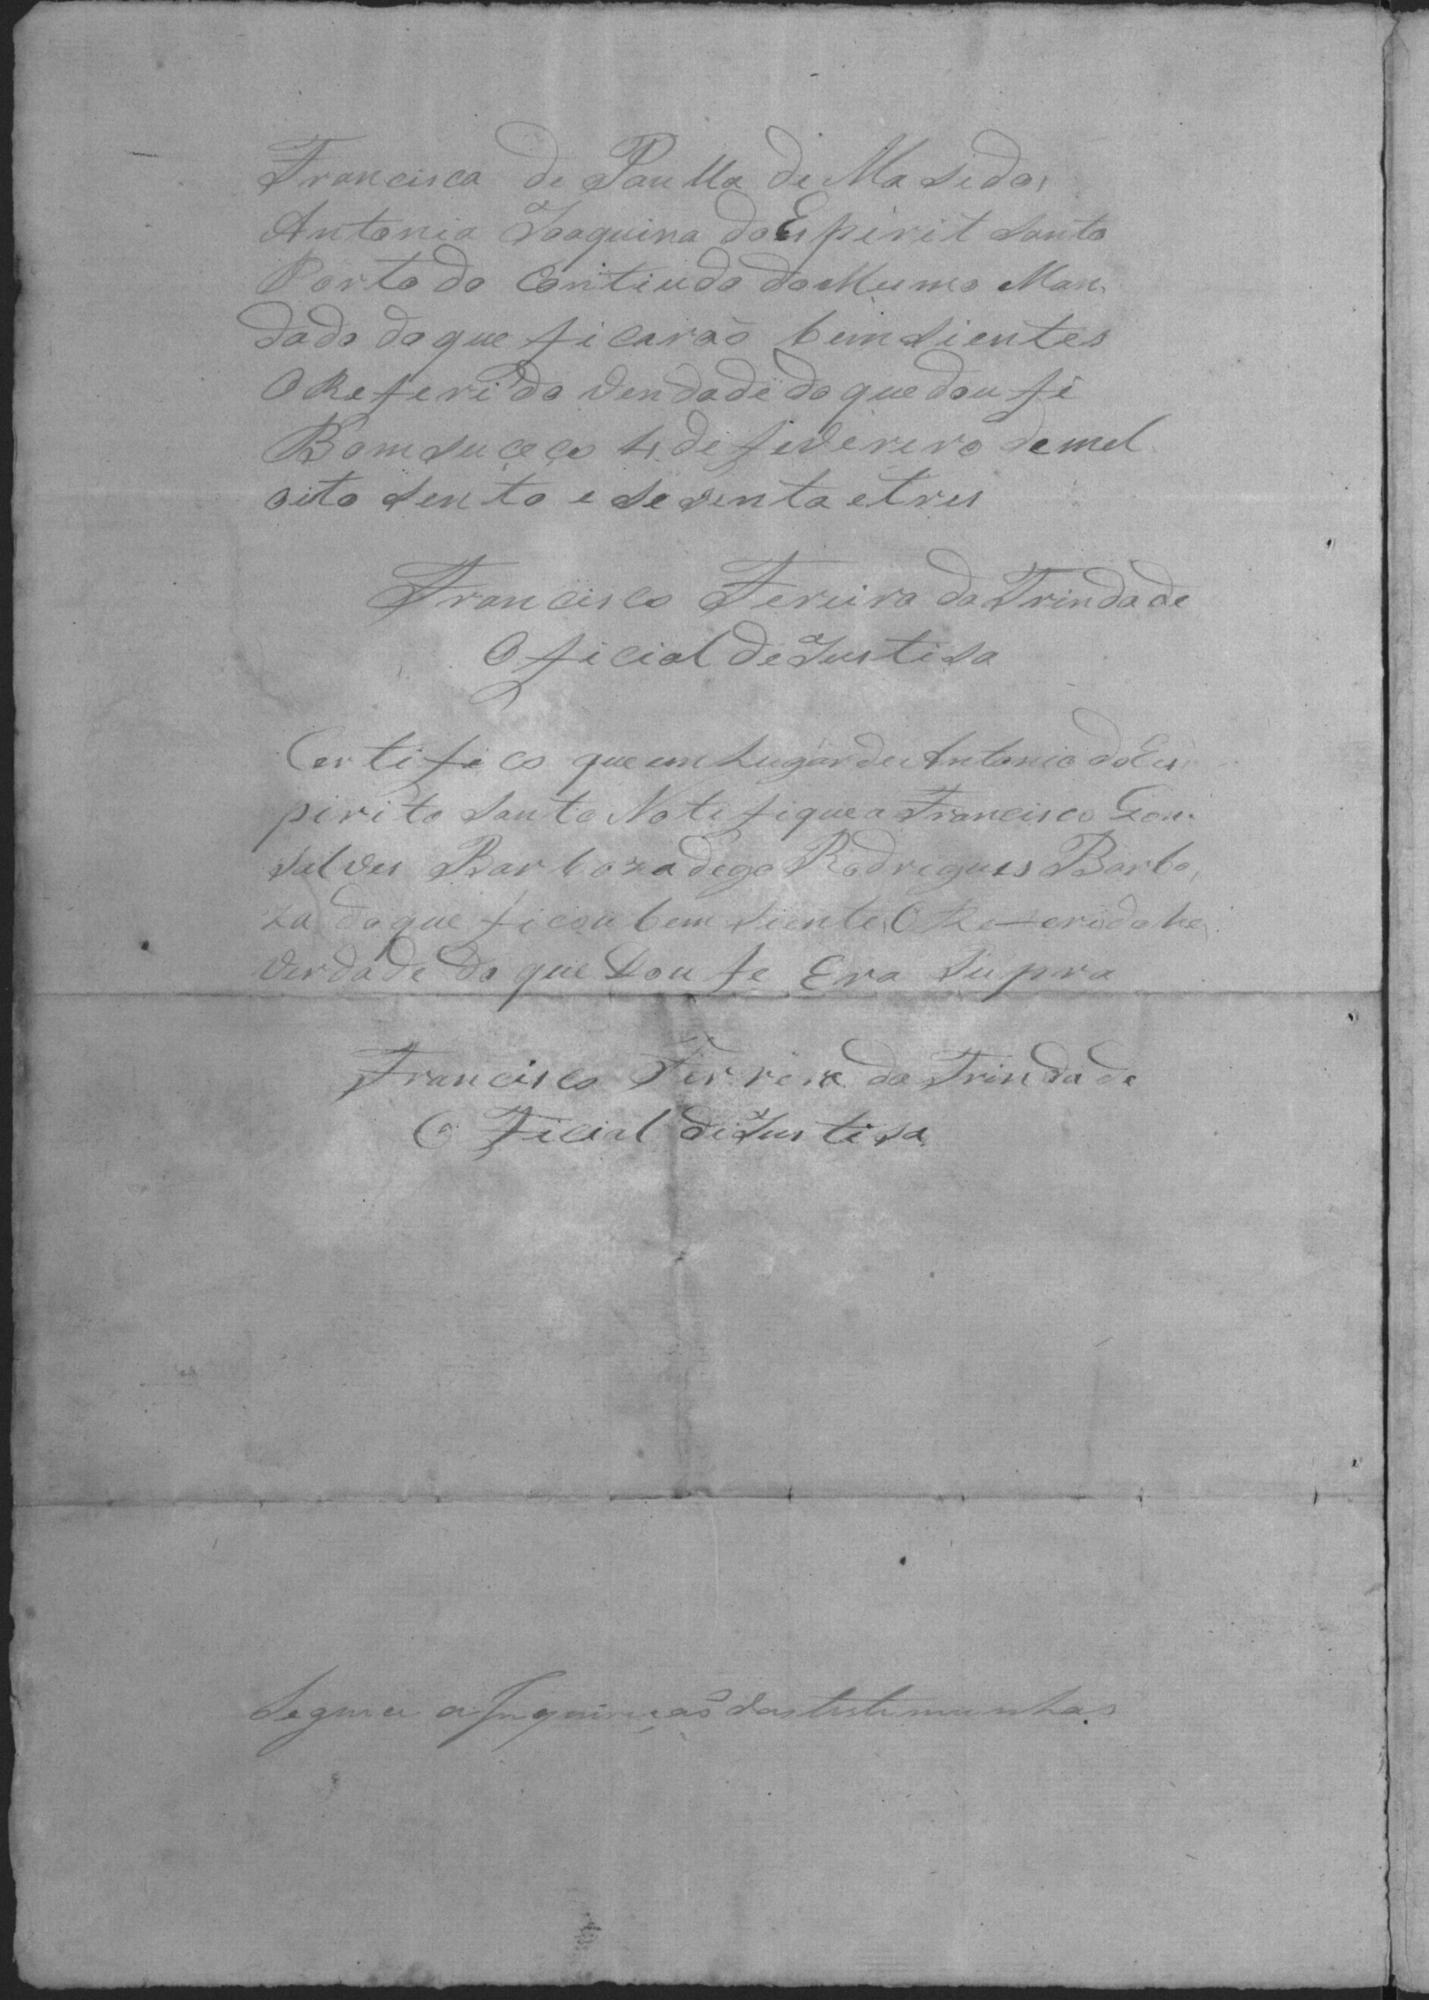 Francisca de Paulla de Masedo,
Antonia Joaquina do Espirit Santo
Porto do Contiudo do Mesmo Man,
dado do que ficarão bem Sientes
O Referido Verdade do que dou fé
Bom Suceço 4 de feverero de mel
oito Sento e Setenta e tres
Francisco Fereira da Trindade
Oficial de Justisa
Certifico que em Lugar de Antonio do Es,
pirito Santo Notifiquea Francisco Gon.
salves Barboza digo Rodrigues Barbo,
za do que ficou bem Siente O Referido he
Verdade do que Dou fe Era Supra
Francisco Ferreira da Trindade
Oficial de Justisa
Segue a Inquirição das testemunhas